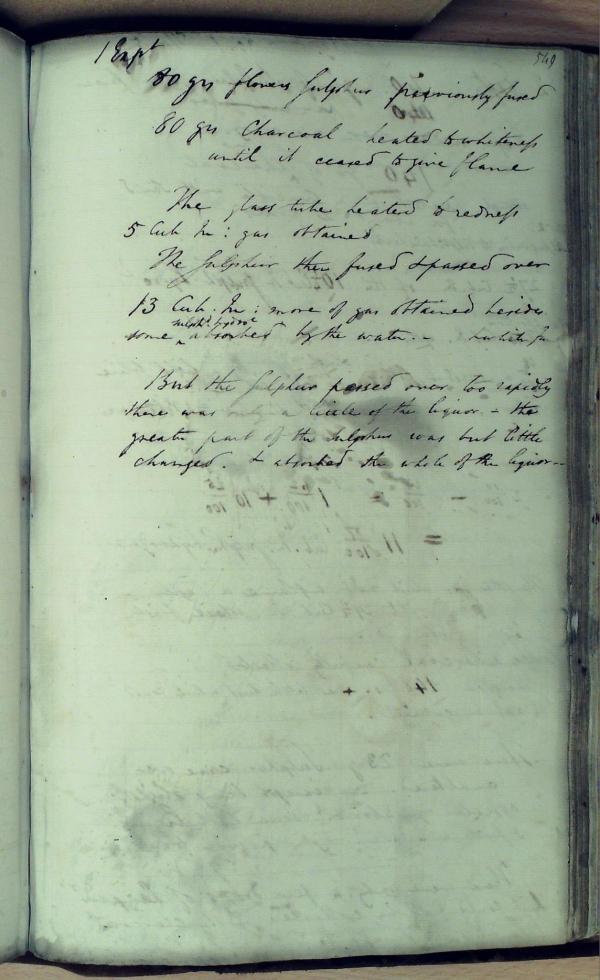 549
1 Expt
80 grs flowers Sulphur previously fused
80 grs Charcoal heated to whiteness
until it ceased to give flame
The glass tube heated to redness
5 Cub In: gas obtained
The Sulphur then fused & passed over
13 Cub. In: more of gas obtained besides
some sulphd. hydroe absorbed by the water. -
But the Sulphur passed over too rapidly
there was only a little of the liquor - the
greater part of the Sulphur was but little
changed. & absorbed the whole of the liquor -